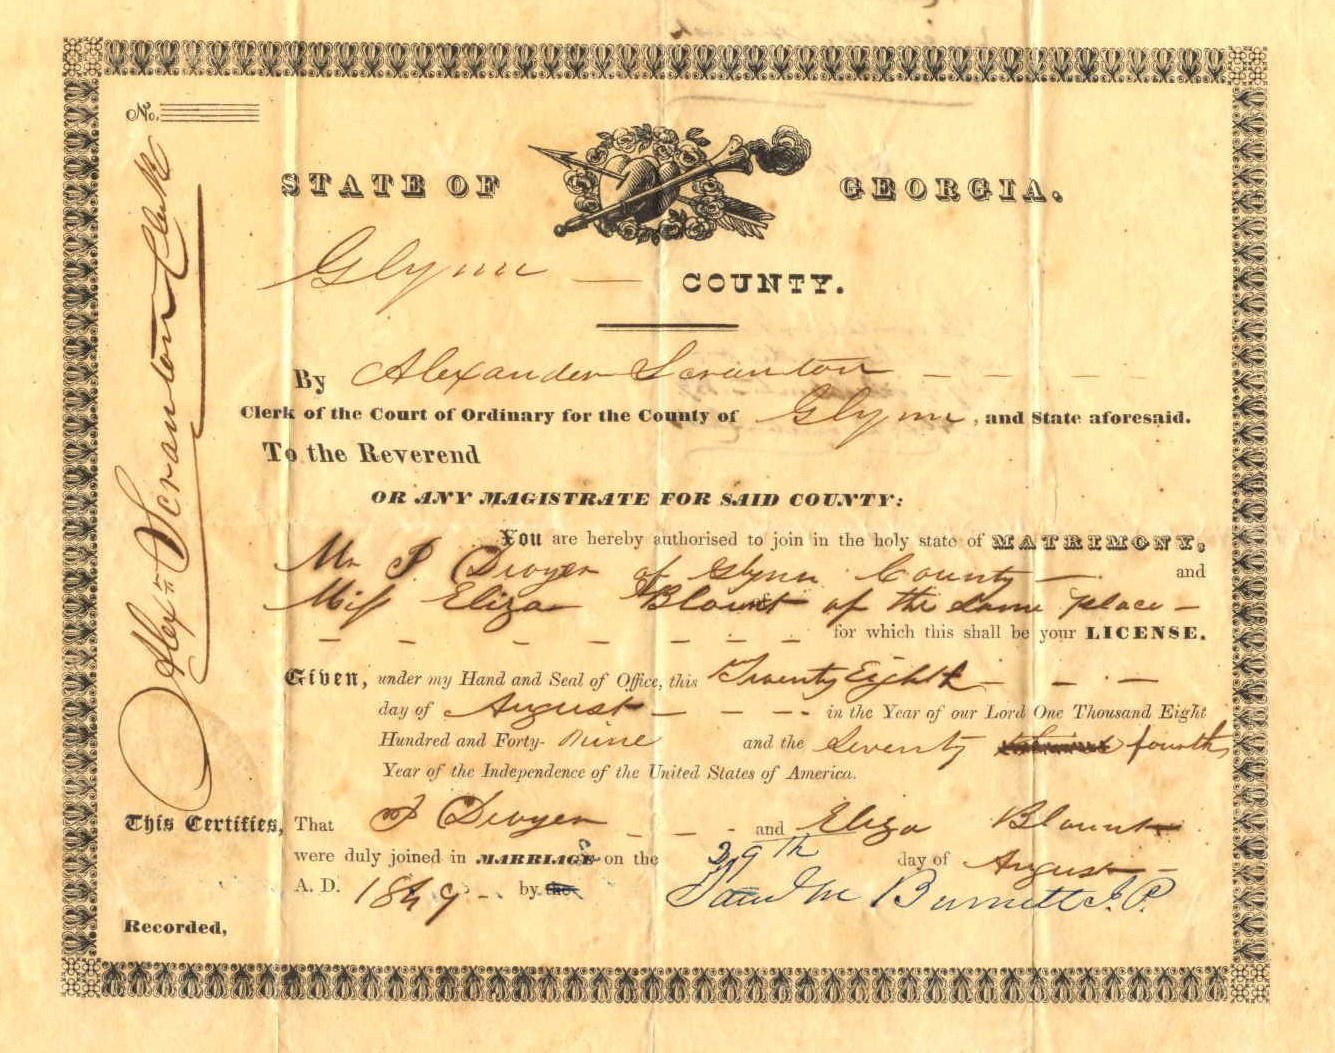 No.
STATE OF GEORGIA.
Glynn — COUNTY.
By Alexander Scranton
Clerk of the Court of Ordinary for the County of Glynn, and State aforesaid.
To the Reverend
OR ANY MAGISTRATE FOR SAID COUNTY:
You are hereby authorised to join in the holy state of MATRIMONY,
Mr Dwyer of Glynn County — and
Miss Eliza Blount of the Same place —
for which this shall be your LICENSE.
Given, under my Hand and Seal of Office, this Twenty Eighth
day of August in the Year of our Lord One Thousand Eight
Hundred and Forty- nine and the Seventy fourth
Year of the Independence of the United States of America.
This Certifies, That Dwyer and Eliza Blount
were duly joined in MARRIAGE on the 29th day of August
A. D. 1849 by the Burnett J. P.
Recorded,
Alexr Scranton Clerk